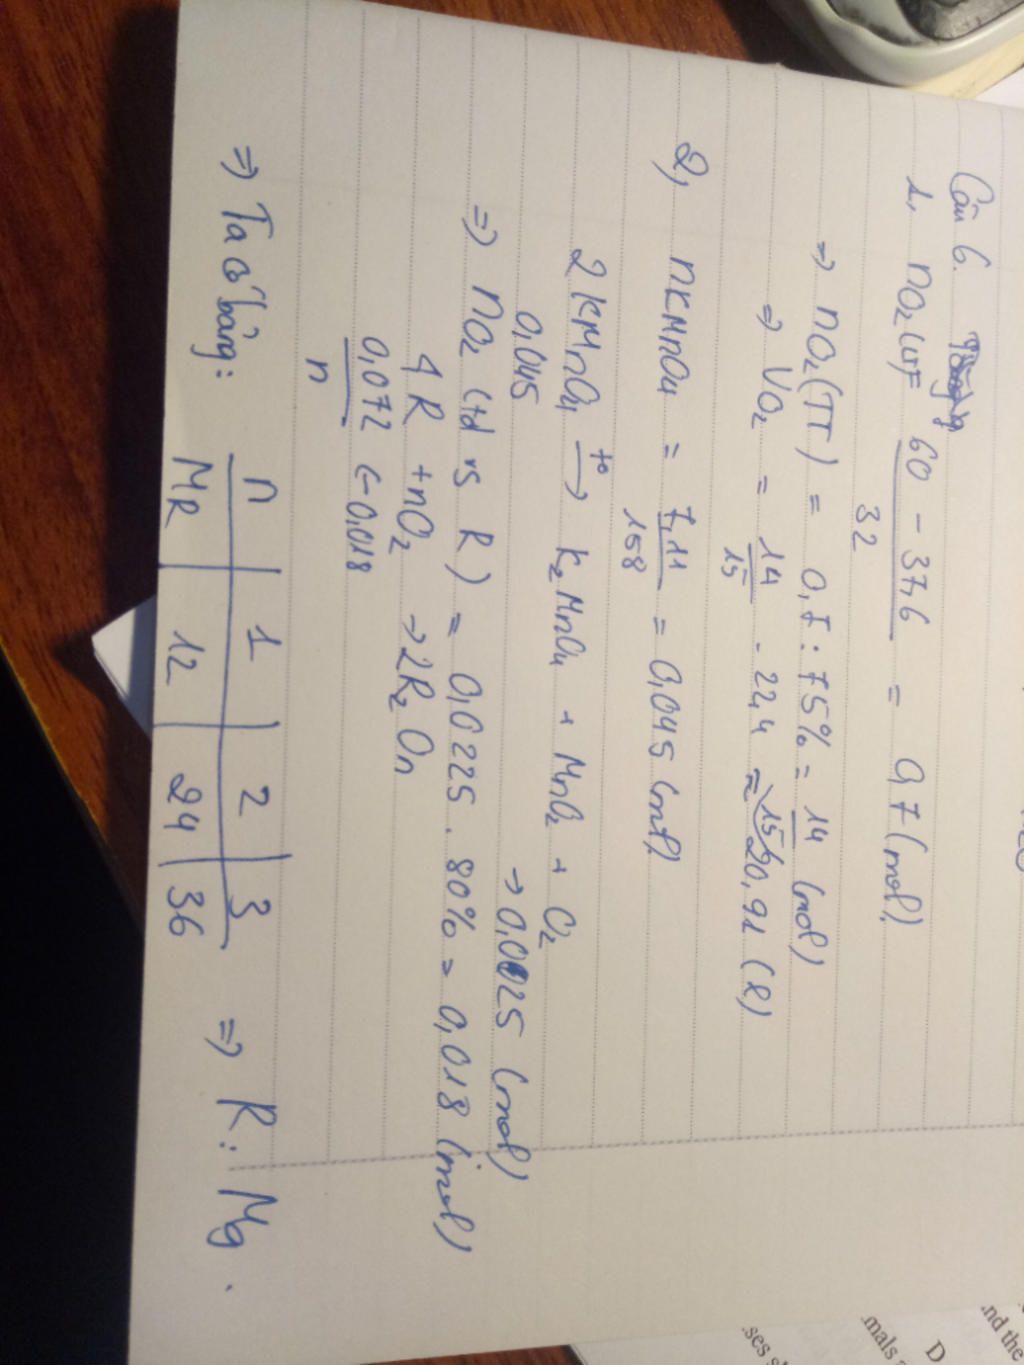 Câu 6.
1, nO2(LT) = 60 - 37,6 / 32 = 0,7 (mol)
=> nO2(TT) = 0,7 : 75% = 14/15 (mol)
=> VO2 = 14/15 . 22,4 ≈ 20,91 (l)
2, nKMnO4 = 7,11/158 = 0,045 (mol)
2KMnO4 —t°→ K2MnO4 + MnO2 + O2
0,045 → 0,0225 (mol)
=> nO2 (td vs R) = 0,0225 . 80% = 0,018 (mol)
4R + nO2 → 2R2On
0,072/n <- 0,018
=> Ta có bảng:
n | 1 | 2 | 3
MR | 12 | 24 | 36
=> R: Mg.
nd the
D
mals
ses